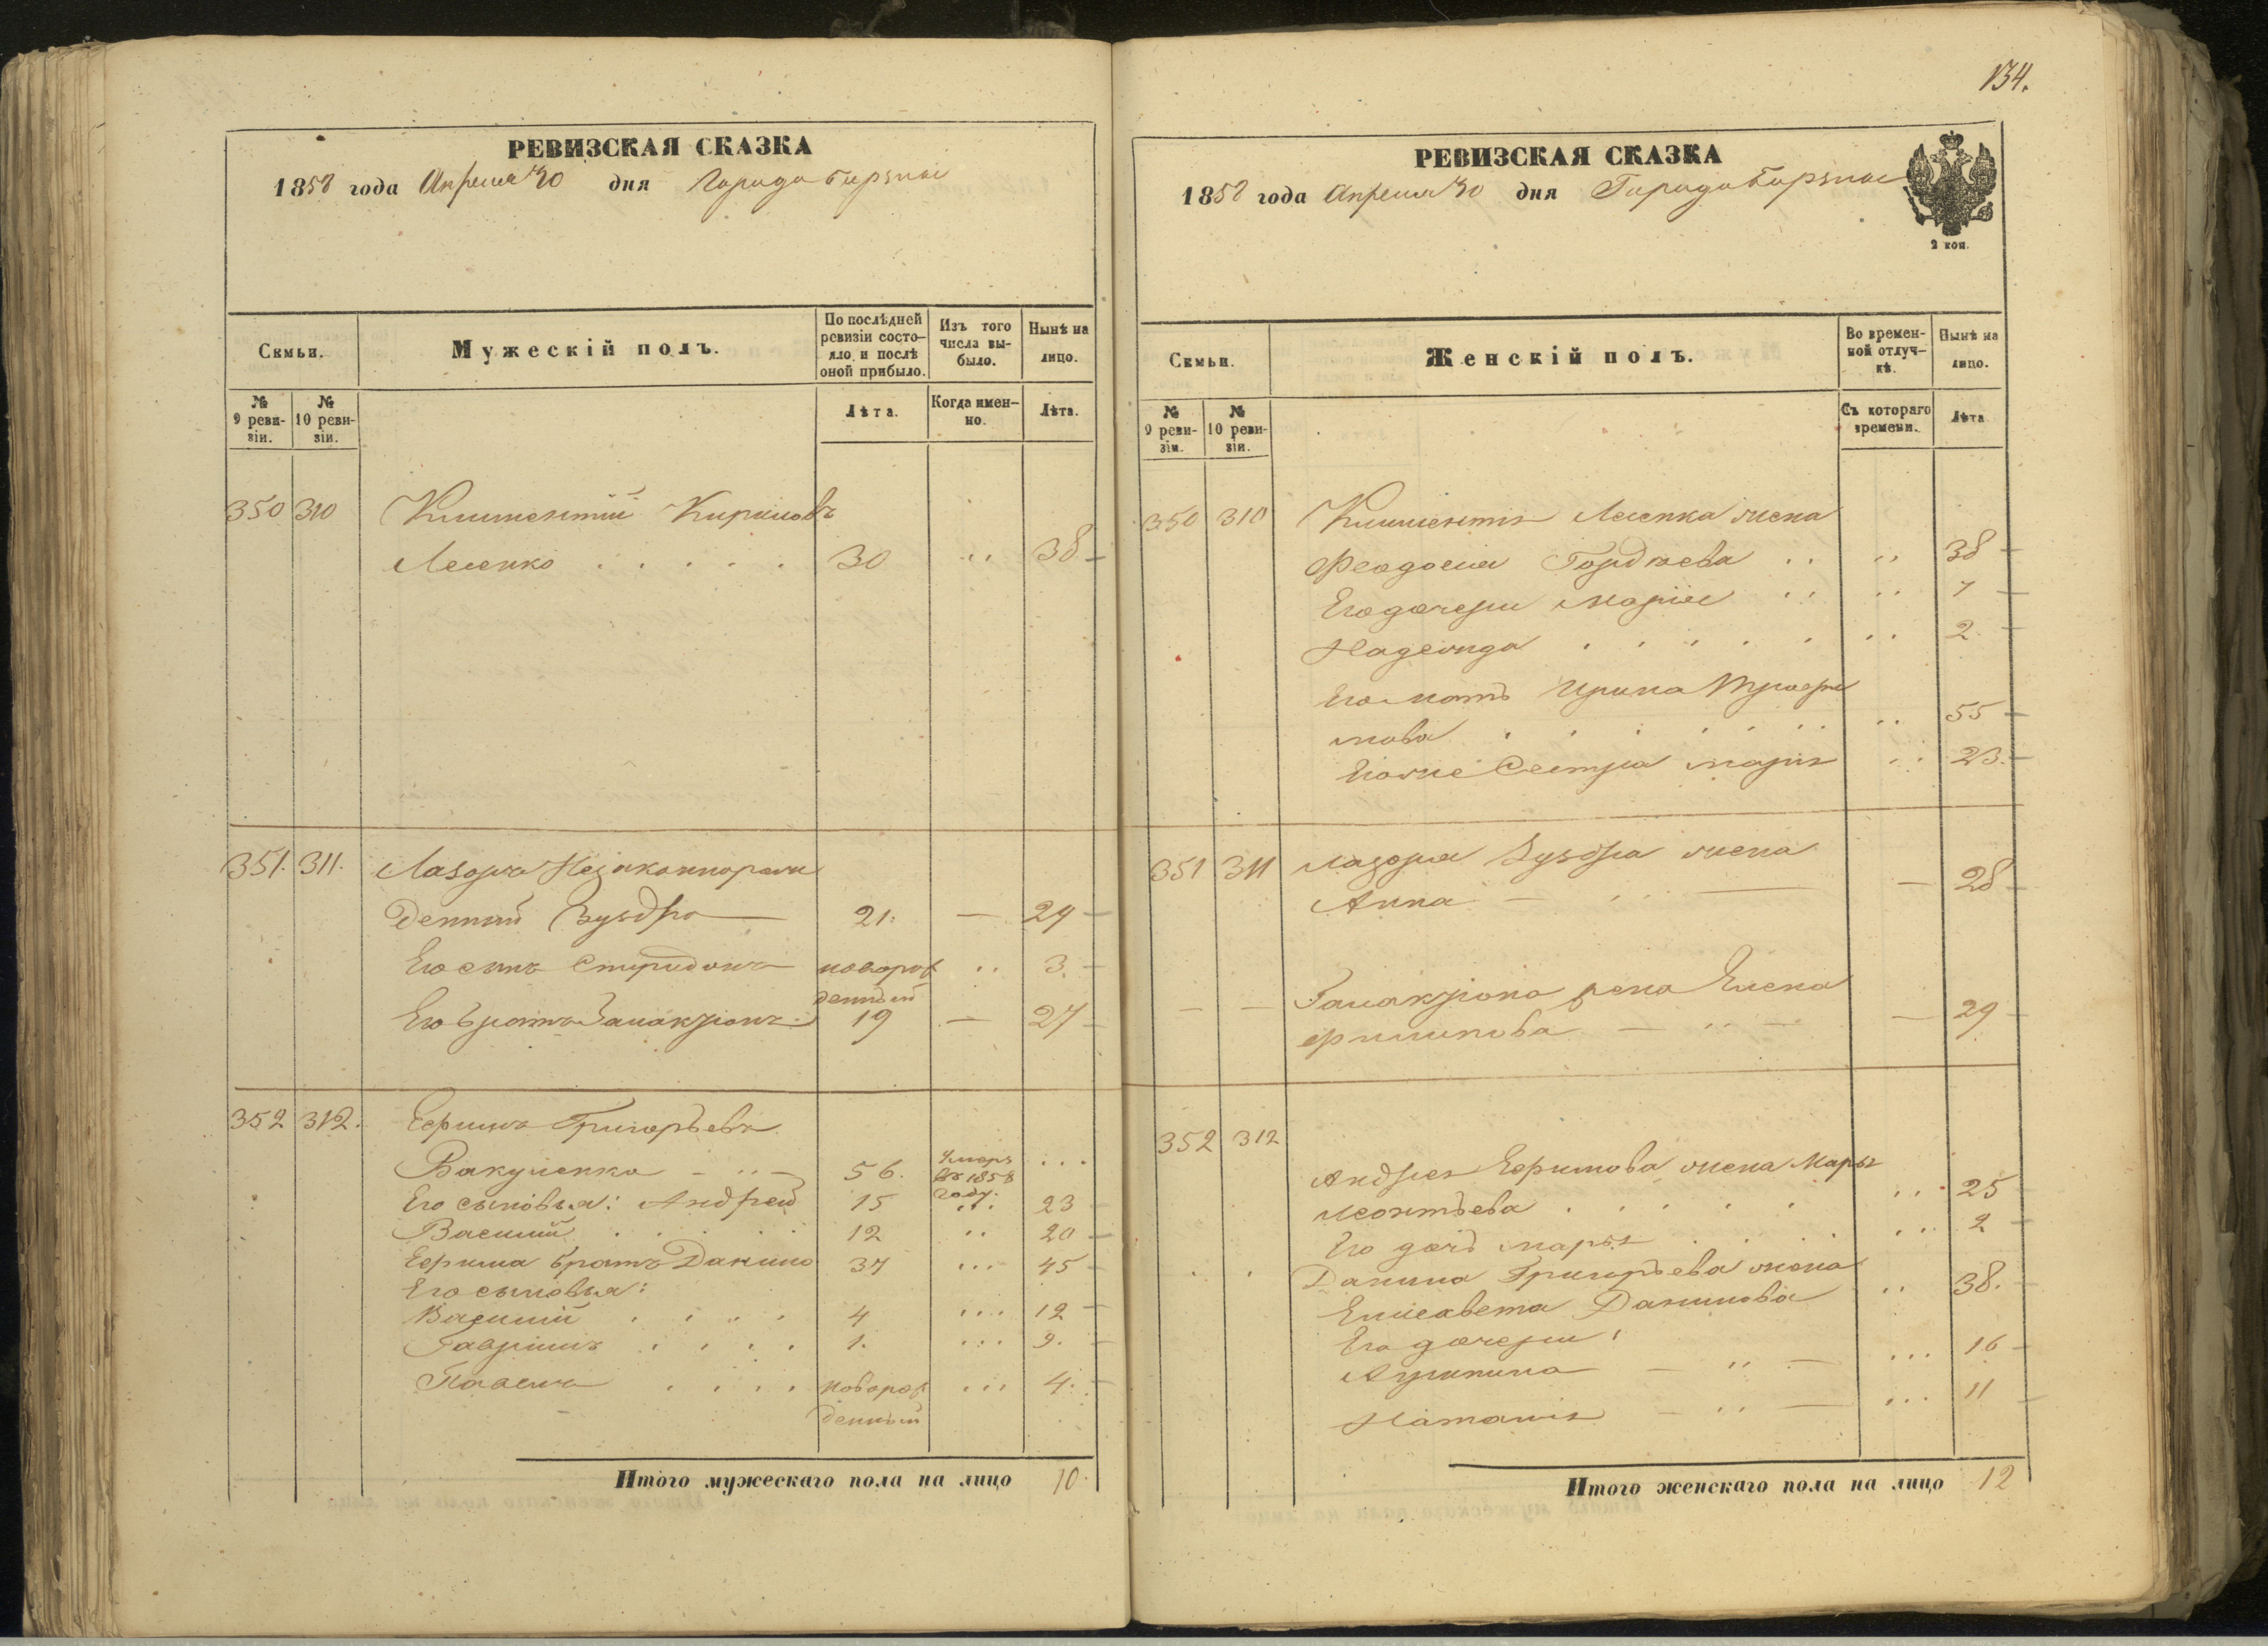 134.
РЕВИЗСКАЯ СКАЗКА
1858 года Апреля 30 дня Города Борзны
Семьи.
Мужескій полъ.
По послѣдней ревизіи состояло и послѣ оной прибыло.
Изъ того числа выбыло.
Нынѣ на лицо.
№ 9 ревизіи.
№ 10 ревизіи.
Лѣта.
Когда именно.
Лѣта.
350 310 Климентій Кириловъ
Лесенко . . . . . 30 " 38
351. 311. Лазарь Незаконнорож
денный 21. — 29
Его сынъ Спиридонъ новорож 3.
денный
Его братъ 19 — 27
352 312. Ефимъ Григорьевъ
Вакуленко — " — 56. умеръ въ 1858 году. ...
Его сыновья: Андрей 15 ... 23
Василій . . . . . 12 .. 20
Ефима братъ Данило 37 ... 45
Его сыновья:
Василій . . . . 4 ... 12
Гаврііилъ . . . . 1. ... 9.
Павелъ . . . . новорож ... 4.
денный
Итого мужескаго пола на лицо 10.
РЕВИЗСКАЯ СКАЗКА
1858 года Апреля 30 дня Города Борзны
2 коп.
Семьи.
Женскій полъ.
Во временной отлучкѣ.
Нынѣ на лицо.
№ 9 ревизіи.
№ 10 ревизіи.
Съ котораго времени.
Лѣта
350 310 Климентія Лесенка жена
Феодосія Гордѣева .. .. 38
Его дочери Марія .. .. 7
Надежда . . . . . .. 2.
Его мать Ирина Трофи
мова . . . . . . .. 55
Его же Сестра Марія .. 23.
351 311 Лазаря жена
Анна — .. — 28
— — жена Елена
Филипова — .. — — 29
352 312
Андрея Ефимова жена Марья
Леонтьева . . . . . ... 25
Его дочь Марья . . . . ... 2
Данила Григорьева жена
Елисавета Данилова .. 38.
Его дочери:
Акулина — .. — ... 16
Наталія — .. — ... 11
Итого женскаго пола на лицо 12